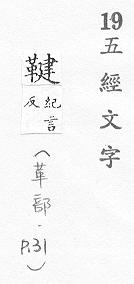 19五經文字
鞬
紀言
反
(革部.
P.31)